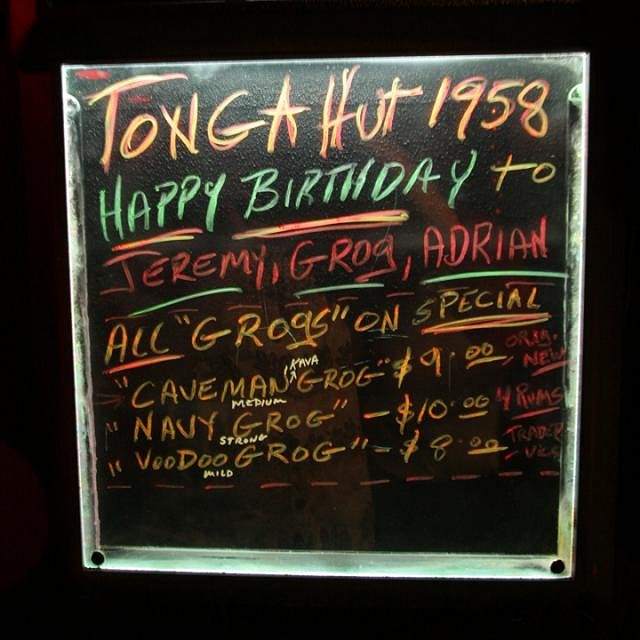 TONGA HUT 1958
HAPPY BIRTHDAY to
JEREMY, GROG, ADRIAN
ALL "GROGS" ON SPECIAL
"CAVEMAN KAVA GROG" $9.00 ORIG. NEW
MEDIUM
"NAVY GROG" - $10.00 4 RUMS
STRONG
"VOODOO GROG" - $8.00 TRADER VICS
MILD